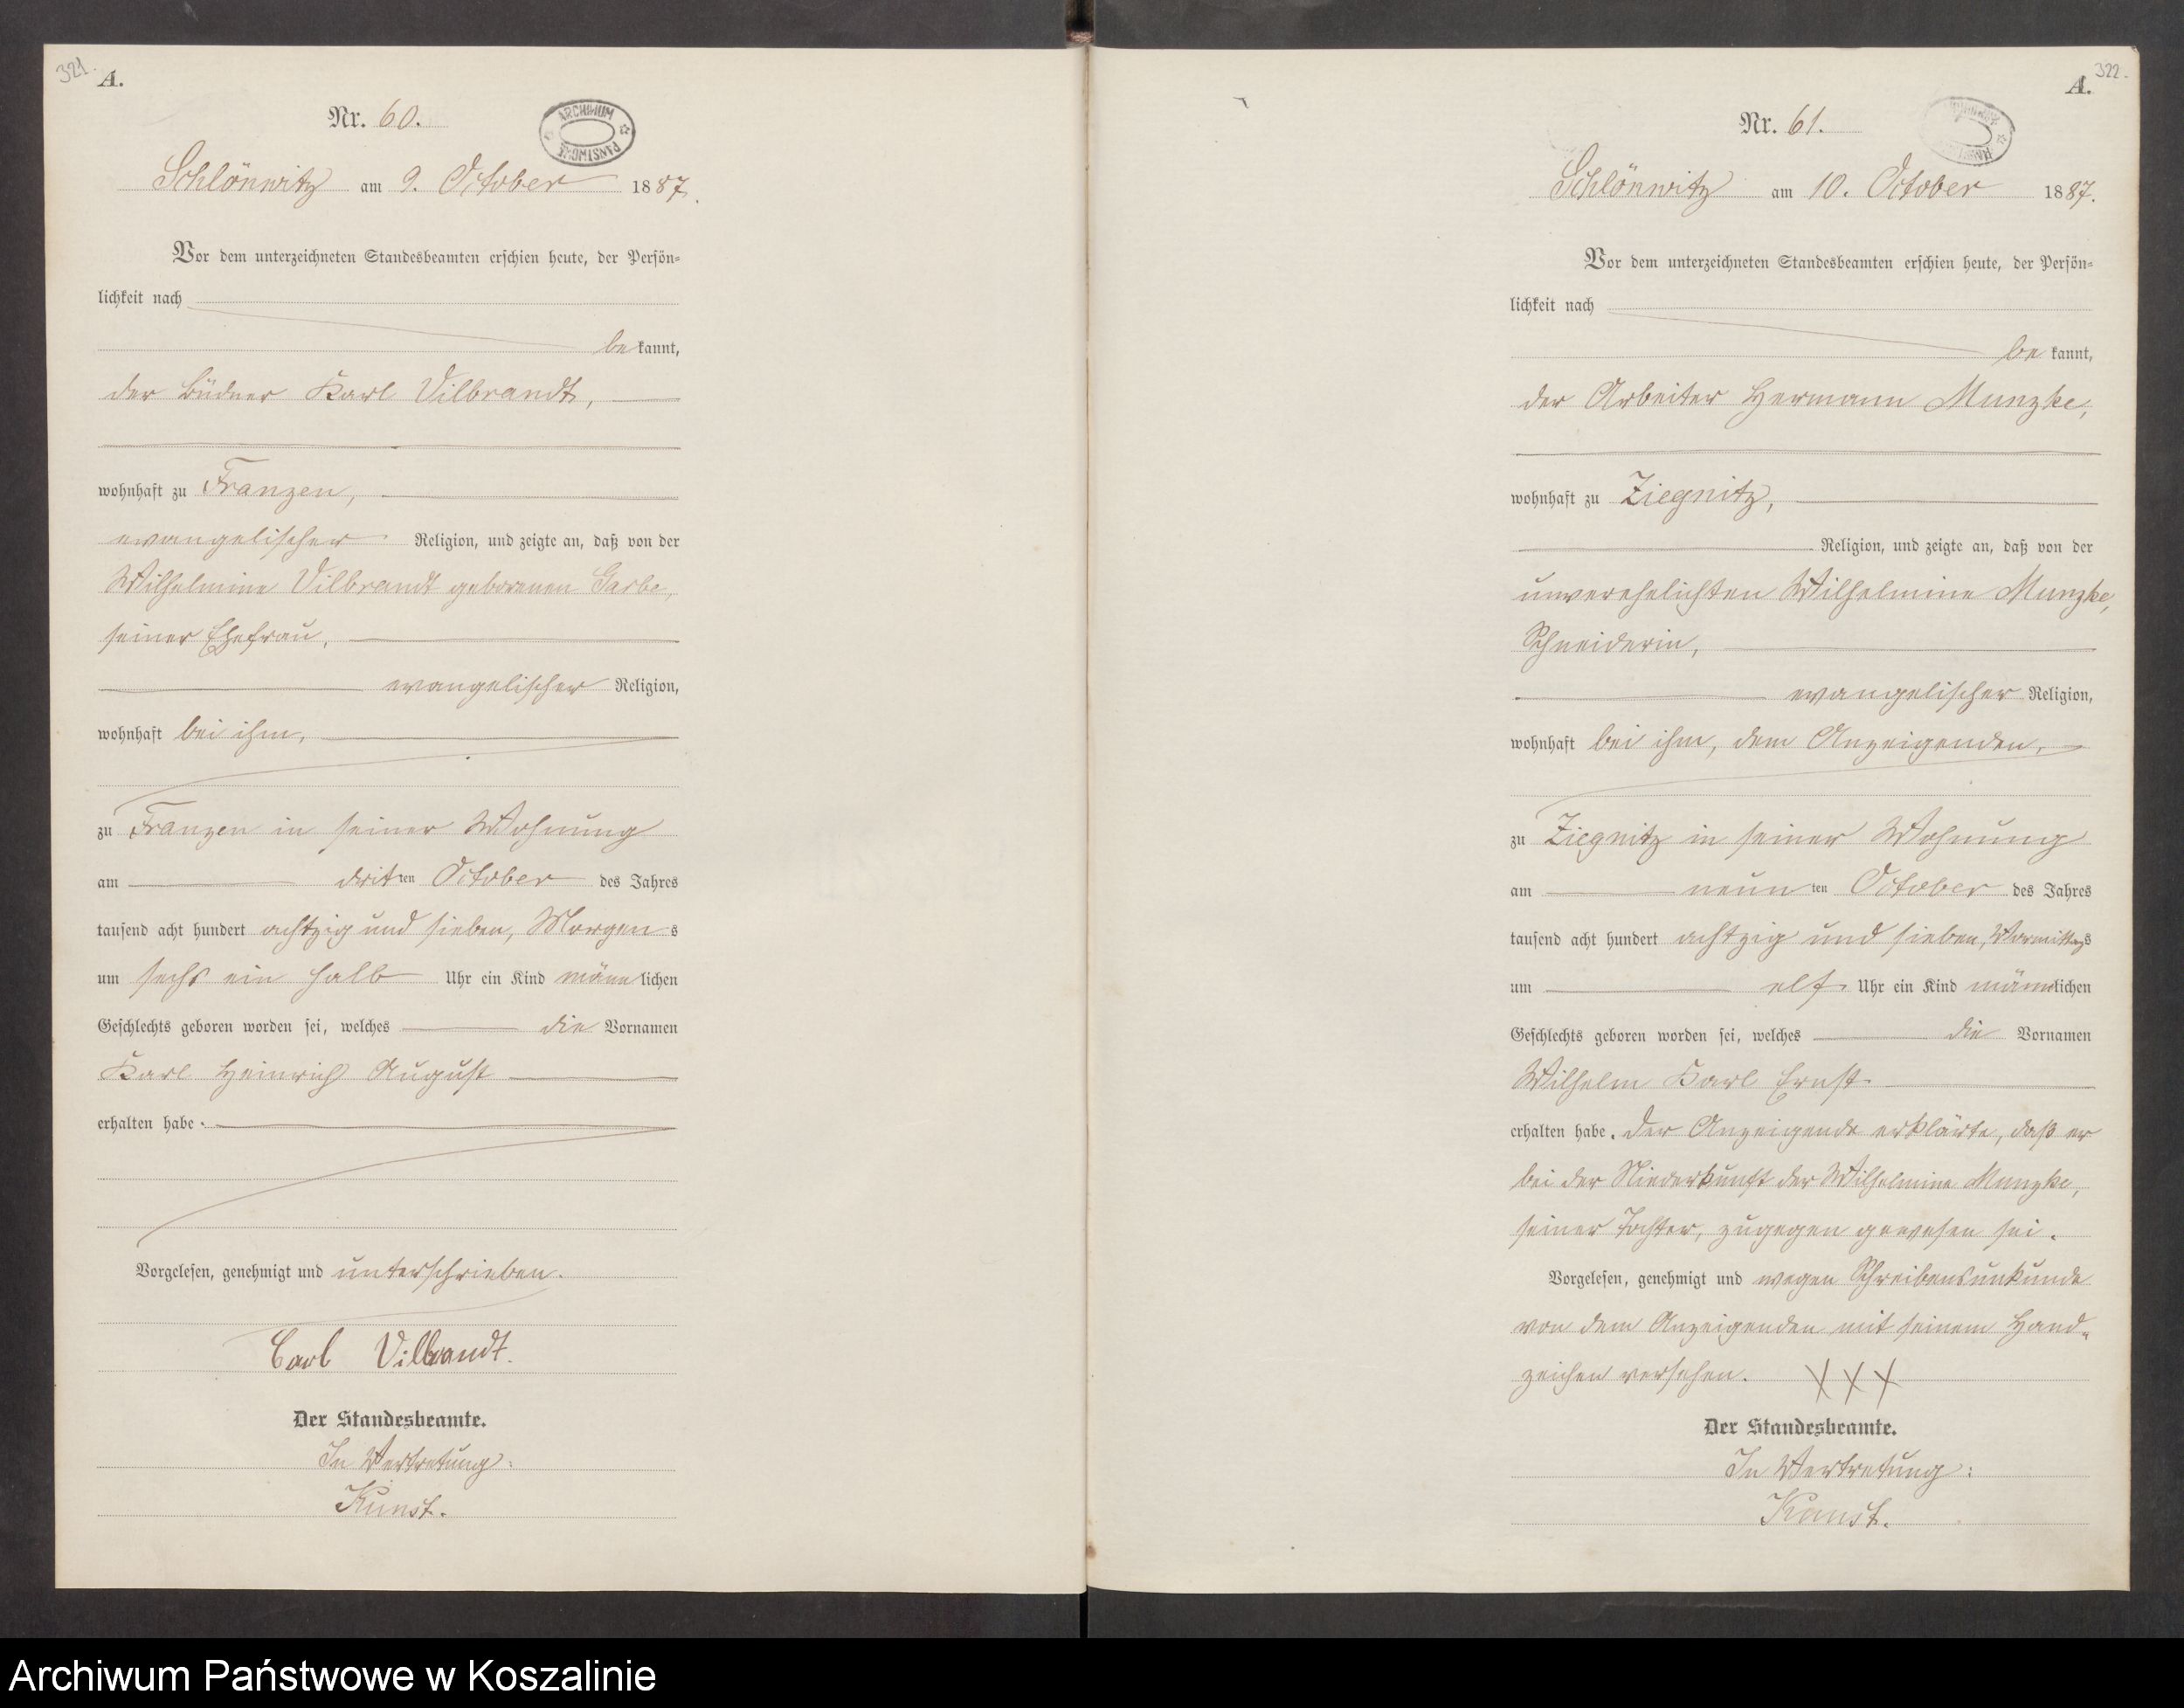 321.
A.
Nr. 60.
ARCHIWUM
PAŃSTWOWE
Schlönwitz am 9. October 1887.
Vor dem unterzeichneten Standesbeamten erschien heute, der Persön-
lichkeit nach
be kannt,
der Büdner Karl Vilbrandt,
wohnhaft zu Franzen,
evangelischer Religion, und zeigte an, daß von der
Wilhelmine Vilbrandt geborenen Garbe,
seiner Ehefrau,
evangelischer Religion,
wohnhaft bei ihm,
zu Franzen in seiner Wohnung
am dritten October des Jahres
tausend acht hundert achtzig und sieben, Morgens
um sechs ein halb Uhr ein Kind männlichen
Geschlechts geboren worden sei, welches die Vornamen
Karl Heinrich August
erhalten habe.
Vorgelesen, genehmigt und unterschrieben.
Carl Vilbrandt.
Der Standesbeamte.
In Vertretung:
Kunst.
322.
A.
Nr. 61.
Schlönwitz am 10. October 1887.
Vor dem unterzeichneten Standesbeamten erschien heute, der Persön-
lichkeit nach
be kannt,
der Arbeiter Hermann Munzke,
wohnhaft zu Ziegnitz,
Religion, und zeigte an, daß von der
unverehelichten Wilhelmine Munzke,
Schneiderin,
evangelischer Religion,
wohnhaft bei ihm, dem Anzeigenden,
zu Ziegnitz in seiner Wohnung
am neunten October des Jahres
tausend acht hundert achtzig und sieben, Vormittags
um elf Uhr ein Kind männlichen
Geschlechts geboren worden sei, welches die Vornamen
Wilhelm Karl Ernst
erhalten habe. Der Anzeigende erklärte, daß er
bei der Niederkunft der Wilhelmine Munzke,
seiner Tochter, zugegen gewesen sei.
Vorgelesen, genehmigt und wegen Schreibensunkunde
von dem Anzeigenden mit seinem Hand-
zeichen versehen. XXX
Der Standesbeamte.
In Vertretung:
Kunst.
Archiwum Państwowe w Koszalinie